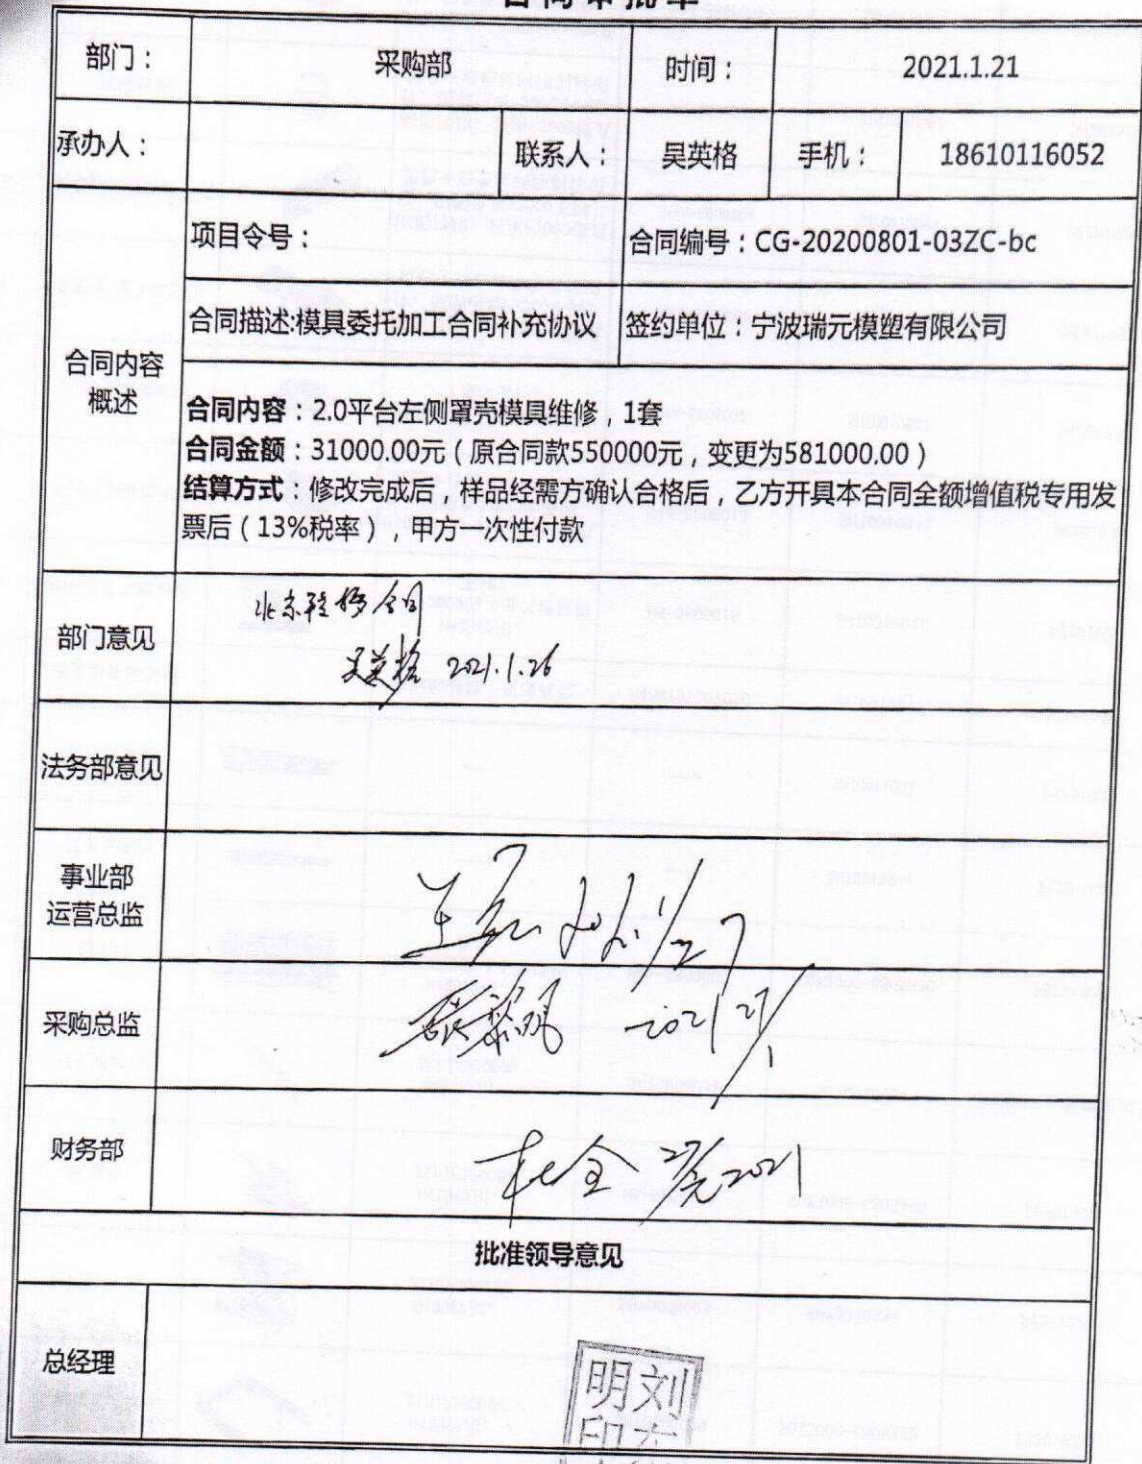 合同审批单
部门： 采购部 时间： 2021.1.21
承办人： 联系人： 吴英格 手机： 18610116052
项目令号： 合同编号：CG-20200801-03ZC-bc
合同描述:模具委托加工合同补充协议 签约单位：宁波瑞元模塑有限公司
合同内容
概述
合同内容：2.0平台左侧罩壳模具维修，1套
合同金额：31000.00元（原合同款550000元，变更为581000.00）
结算方式：修改完成后，样品经需方确认合格后，乙方开具本合同全额增值税专用发
票后（13%税率），甲方一次性付款
部门意见
吴英格 2021.1.26
法务部意见
事业部
运营总监
2021.1/27
采购总监
2021 27/1
财务部
杜全 27/元2021
批准领导意见
总经理
明刘
印